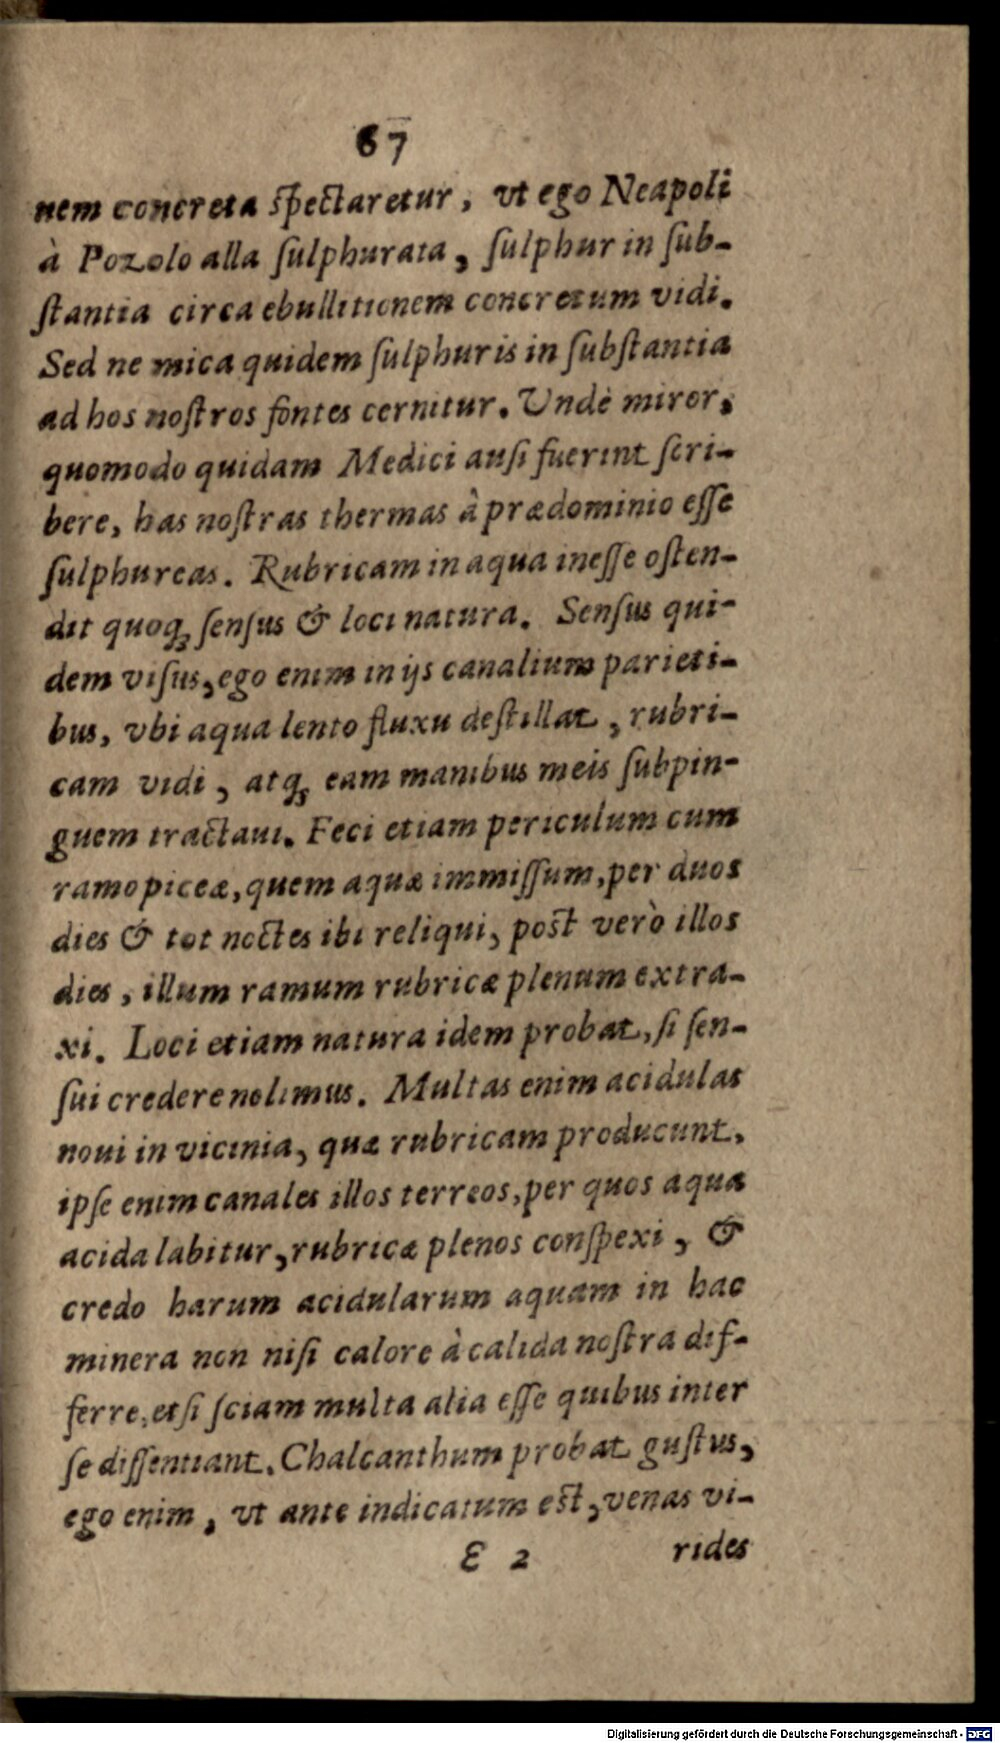 67
nem concreta spectaretur, vt ego Neapoli
à Pozolo alla ſulphurata, ſulphur in ſub-
ſtantia circa ebullitionem concretum vidi.
Sed ne mica quidem ſulphuris in ſubſtantia
ad hos noſtros fontes cernitur. Undè miror,
quomodo quidam Medici auſi fuerint ſcri-
bere, has noſtras thermas à prædominio eſſe
ſulphureas. Rubricam in aqua ineſſe oſten-
dit quoq; ſenſus & loci natura. Senſus qui-
dem viſus, ego enim in ijs canalium parieti-
bus, vbi aqua lento fluxu deſtillat, rubri-
cam vidi, atq; eam manibus meis ſubpin-
guem tractaui. Feci etiam periculum cum
ramo piceæ, quem aquæ immiſſum, per duos
dies & tot noctes ibi reliqui, poſt verò illos
dies, illum ramum rubricæ plenum extra-
xi. Loci etiam natura idem probat, ſi ſen-
ſui credere nolimus. Multas enim acidulas
noui in vicinia, quæ rubricam producunt,
ipſe enim canales illos terreos, per quos aqua
acida labitur, rubricæ plenos conſpexi, &
credo harum acidularum aquam in hac
minera non niſi calore à calida noſtra dif-
ferre, etſi ſciam multa alia eſſe quibus inter
ſe diſſentiant. Chalcanthum probat guſtus,
ego enim, vt ante indicatum eſt, venas vi-
E 2 rides
Digitalisierung gefördert durch die Deutsche Forschungsgemeinschaft - DFG